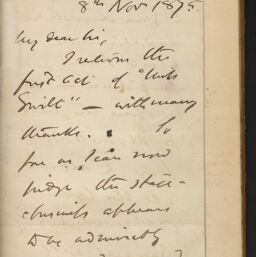 8th Nov 1875.
My dear Sir,
I return the
first Act of "
" — with many
thanks. So
far as I can now
judge the stage-
business appears
to be admirably